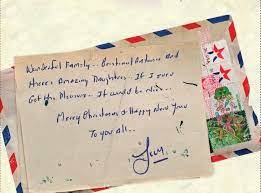 Wonderful Family... Emotional Antonia And
Here's Amazing Daughters... If I ever
Get the Pleasure... It would be nice...
Merry Christmas & Happy New Year
To you all...